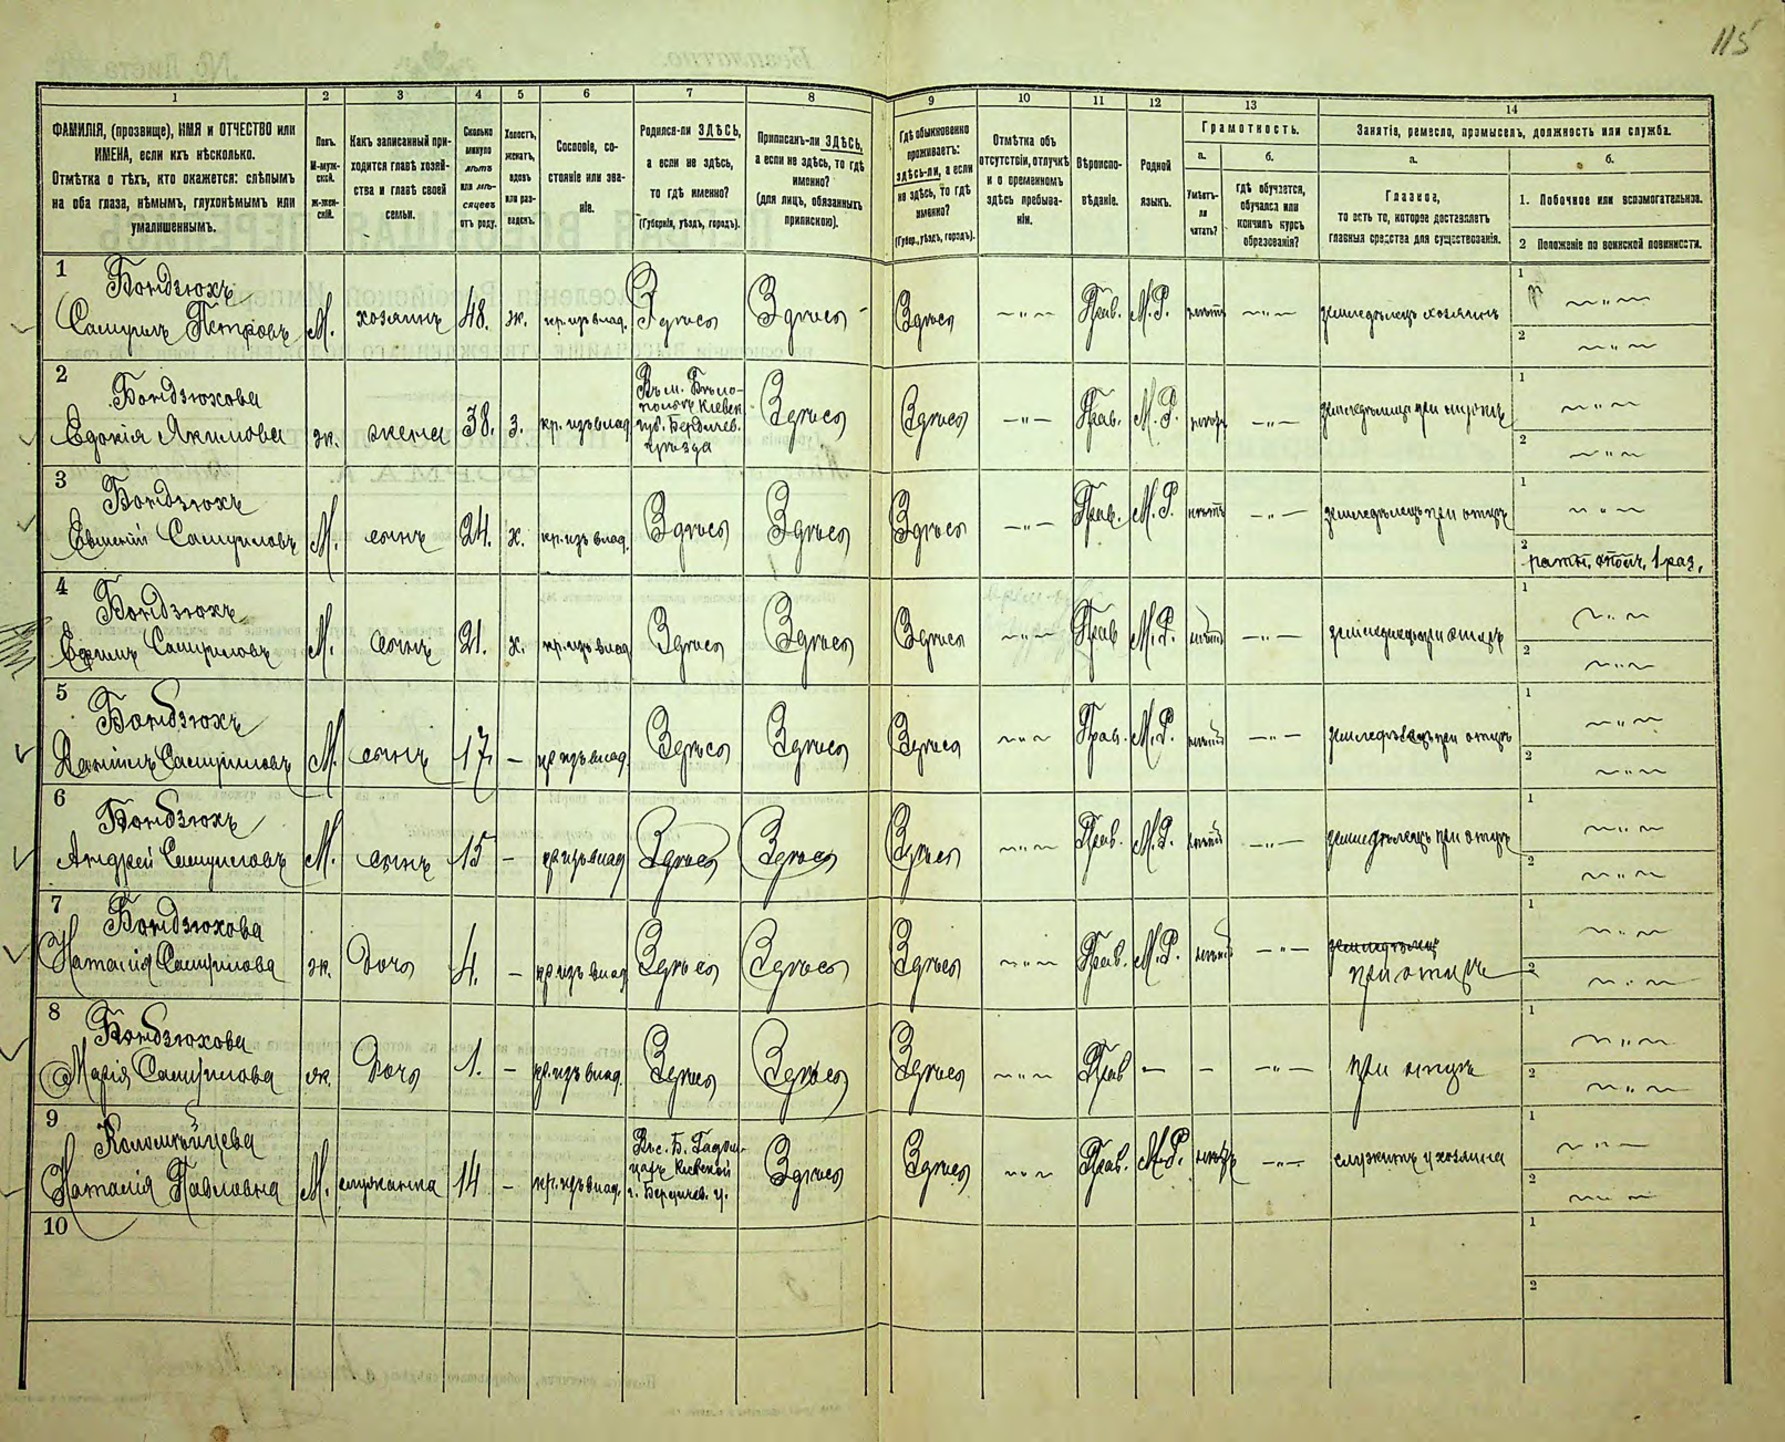 115
1
2
3
4
5
6
7
8
9
10
11
12
13
14
ФАМИЛІЯ, (прозвище), ИМЯ и ОТЧЕСТВО или
ИМЕНА, если ихъ нѣсколько.
Отмѣтка о тѣхъ, кто окажется: слѣпымъ
на оба глаза, нѣмымъ, глухонѣмымъ или
умалишеннымъ.
Полъ.
М-муж-
ской.
Ж-жен-
скій.
Какъ записанный при-
ходится главѣ хозяй-
ства и главѣ своей
семьи.
Сколько
минуло
лѣтъ
или мѣ-
сяцевъ
отъ роду.
Холостъ,
женатъ,
вдовъ
или раз-
веденъ.
Сословіе, со-
стояніе или зва-
ніе.
Родился-ли ЗДѢСЬ,
а если не здѣсь,
то гдѣ именно?
(Губернія, уѣздъ, городъ).
Приписанъ-ли ЗДѢСЬ,
а если не здѣсь, то гдѣ
именно?
(для лицъ, обязанныхъ
припискою).
Гдѣ обыкновенно
проживаетъ:
здѣсь-ли, а если
не здѣсь, то гдѣ
именно?
(Губер., уѣздъ, городъ).
Отмѣтка объ
отсутствіи, отлучкѣ
и о временномъ
здѣсь пребыва-
ніи.
Вѣроиспо-
вѣданіе.
Родной
языкъ.
Грамотность.
а.
Умѣетъ-
ли
читать?
б.
Гдѣ обучается,
обучался или
кончилъ курсъ
образованія?
Занятіе, ремесло, промыселъ, должность или служба.
а.
Главное,
то есть то, которое доставляетъ
главныя средства для существованія.
б.
1. Побочное или вспомогательное.
2 Положеніе по воинской повинности.
1
Бондзюхъ
Самуилъ Петровъ
М.
хозяинъ
48.
ж.
кр. изъ влад.
Здѣсь
Здѣсь
Здѣсь
Прав.
М. Р.
нѣтъ
земледѣлецъ хозяинъ
1
2
2
Бондзюхова
Евдокія Якимова
ж.
жена
38.
з.
кр. изъ влад.
Въ м. Бѣло-
полье Кіевск.
губ. Бердичев.
уѣзда
Здѣсь
Здѣсь
Прав.
М. Р.
1
2
3
Бондзюхъ
Самуиловъ
М.
сынъ
24.
х.
кр. изъ влад.
Здѣсь
Здѣсь
Здѣсь
Прав.
М. Р.
нѣтъ
земледѣлецъ при отцѣ
1
2
ратн. опол. 1 раз.
4
Бондзюхъ
Ефимъ Самуиловъ
М.
сынъ
21.
х.
кр. изъ влад.
Здѣсь
Здѣсь
Здѣсь
Прав
М. Р.
нѣтъ
земледѣлецъ при отцѣ
1
2
5
Бондзюхъ
Даніилъ Самуиловъ
М.
сынъ
17.
–
кр. изъ влад.
Здѣсь
Здѣсь
Здѣсь
Прав.
М. Р.
нѣтъ
земледѣлецъ при отцѣ
1
2
6
Бондзюхъ
Андрей Самуиловъ
М.
сынъ
15
–
кр. изъ влад
Здѣсь
Здѣсь
Здѣсь
Прав.
М. Р.
нѣтъ
земледѣлецъ при отцѣ
1
2
7
Бондзюхова
Наталія Самуилова
ж.
дочь
4.
–
кр. изъ влад
Здѣсь
Здѣсь
Здѣсь
Прав.
М. Р.
нѣтъ
при отцѣ
1
2
8
Бондзюхова
Марія Самуилова
ж.
дочь
1.
–
кр. изъ влад.
Здѣсь
Здѣсь
Здѣсь
Прав
–
–
при отцѣ
1
2
9
Коломѣйцева
Наталія Павловна
М.
служанка
14
–
кр. изъ влад.
Кіевской
г. Бердичев. у.
Здѣсь
Здѣсь
Прав.
М. Р.
служитъ у хозяина
1
2
10
1
2